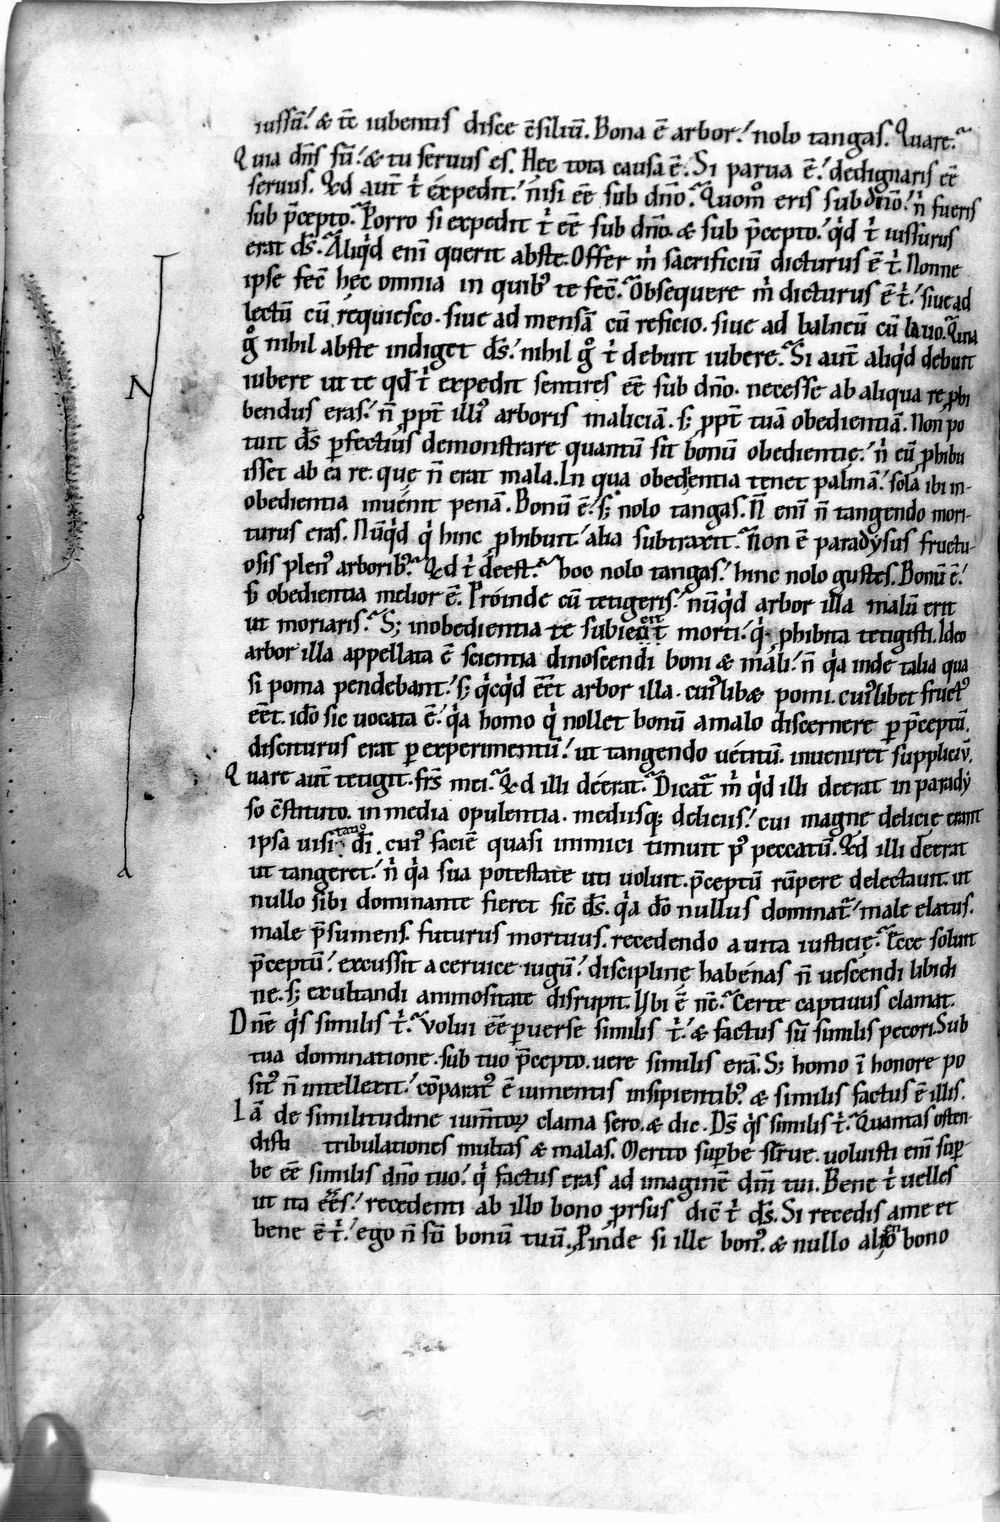 iussū. & tē iubentis disce c̄siliū. Bona ē arbor. nolo tangas. Quare.
Quia dn̄s sū. & tu seruus es. Hec tota causa ē. Si parua ē. dedignaris eē
seruus. Qd aut̄ t' expedit. nisi eē sub dn̄o. Quom̊ eris sub dn̄o. n' fueris
sub p̄cepto. Porro si expedit t' eē sub dn̄o. & sub p̄cepto. q'd t' iussurus
erat ds̄. Aliq'd eni querit abs te. Offer m' sacrificiū dicturus ē t'. Nonne
ipse fec̄ hęc omnia in quib; te fec̄. Obsequere m' dicturus ē t'. siue ad
lectū cū requiesco. siue ad mensā cū reficio. siue ad balneū cū lauo. Quia
g° nihil abs te indiget ds̄. nihil g° t' debuit iubere. Si aut̄ aliq'd debuit
iubere ut te qd t' expedit sentires eē sub dn̄o. necesse ab aliqua re ꝓhi
bendus eras. n̄ ꝓpt̄ illi' arboris maliciā. s; ꝓpt̄ tuā obedientiā. Non po
tuit ds̄ ꝑfectius demonstrare quantū sit bonū obedientię. n' cū ꝓhibu
isset ab ea re. quę n̄ erat mala. In qua obedientia tenet palmā. sola ibi in-
obedientia inuenit penā. Bonū ē. s; nolo tangas. N̄ eni n̄ tangendo mori-
turus eras. Nūq'd q' hinc ꝓhibuit. alia subtraxit. Non ē paradysus fructu-
osis plen' arborib;. Qd t' deest. hoc nolo tangas. hinc nolo gustes. Bonū ē.
s; obedientia melior ē. Proinde cū tetigeris. nūq'd arbor illa malū erit
ut moriaris. S; inobedientia te subiec̄it morti. q' ꝓhibita tetigisti. Ideo
arbor illa appellata ē scientia dinoscendi boni & mali. n̄ q'a inde talia qua
si poma pendebant. s; q'cq'd eēt arbor illa. cui'libę pomi. cui'libet fruct'
eēt. ido sic uocata ē. q'a homo q' nollet bonū a malo discernere ꝑ p̄ceptū.
disciturus erat ꝑ experimentū. ut tangendo uetitū. inueniret suppliciū.
Quare aut̄ tetigit. frs̄ mei. Qd illi deerat. Dicat̄ m' q'd illi deerat in parady
so c̄stituto. in media opulentia. mediisq; deliciis. cui magne delicie erant
ipsa uisitatio di. cui' faciē quasi inimici timuit p' peccatū. Qd illi deerat
ut tangeret. n' q'a sua potestate uti uoluit. p̄ceptū rūpere delectauit. ut
nullo sibi dominante fieret sic̄ ds̄. q'a do nullus dominat̄. male elatus.
male p̄sumens. futurus mortuus. recedendo a uita iusticię. Ecce soluit
p̄ceptū. excussit a ceruice iugū. disciplinę habenas n̄ uescendi libidi
ne. s; exultandi animositate disrupit. Ubi ē nc̄. Certe captiuus clamat.
Dn̄e q's similis t'. Volui eē ꝑuerse similis t'. & factus sū similis pecori. Sub
tua dominatione. sub tuo p̄cepto. uere similis erā. S; homo i honore po
sit' n̄ intellexit. cōparat' ē iumentis insipientib; & similis factus ē illis.
Iā de similitudine iumtoꝝ clama sero. & dic. Ds̄ q's similis t'. Quantas osten-
disti tribulationes multas & malas. Merito suꝑbe serue. uoluisti eni suꝑ-
be eē similis dn̄o tuo. q' factus eras ad imaginē dn̄i tui. Bene t' uelles
ut ita eēs. recedenti ab illo bono prorsus dic̄ t' ds̄. Si recedis a me et
bene ē t'. ego n̄ sū bonū tuū. Pinde si ille bon'. & nullo alio bono